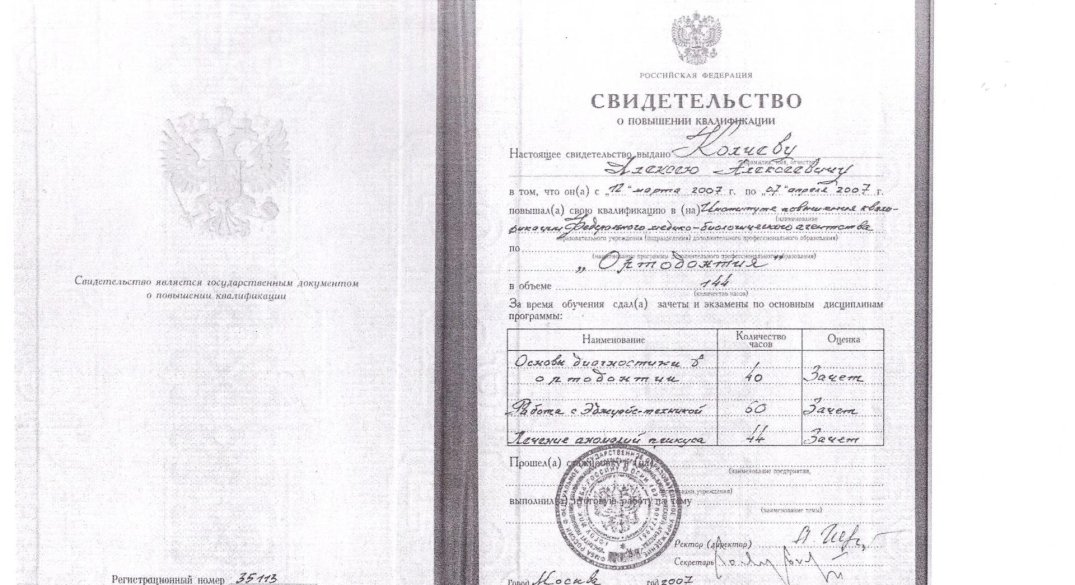 Свидетельство является государственным документом
о повышении квалификации
Регистрационный номер 35113
РОССИЙСКАЯ ФЕДЕРАЦИЯ
СВИДЕТЕЛЬСТВО
О ПОВЫШЕНИИ КВАЛИФИКАЦИИ
Настоящее свидетельство выдано Количеву
(фамилия, имя, отчество)
Алексею Алексеевичу
в том, что он(а) с „12" марта 2007 г. по „07" апреля 2007 г.
повышал(а) свою квалификацию в (на) Институте повышения квали-
(наименование
фикации Федерального медико-биологического агентства
образовательного учреждения (подразделения) дополнительного профессионального образования)
по
(наименование программы дополнительного профессионального образования)
„Ортодонтия"
в объеме 144
(количество часов)
За время обучения сдал(а) зачеты и экзамены по основным дисциплинам
программы:
Наименование Количество часов Оценка
Основы диагностики в
ортодонтии 40 Зачет
Работа с Эджуайс-техникой 60 Зачет
Лечение аномалий прикуса 44 Зачет
Прошел(а)
(наименование предприятия,
учреждения)
выполнил(а) итоговую работу на тему
(наименование темы)
Ректор (директор)
Секретарь
Город Москва год 2007